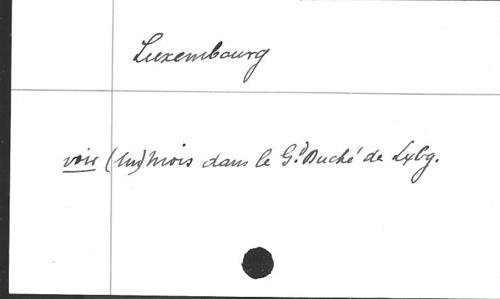 Luxembourg
voir (Un) Mois dans le Gd Duché de Lxbg.